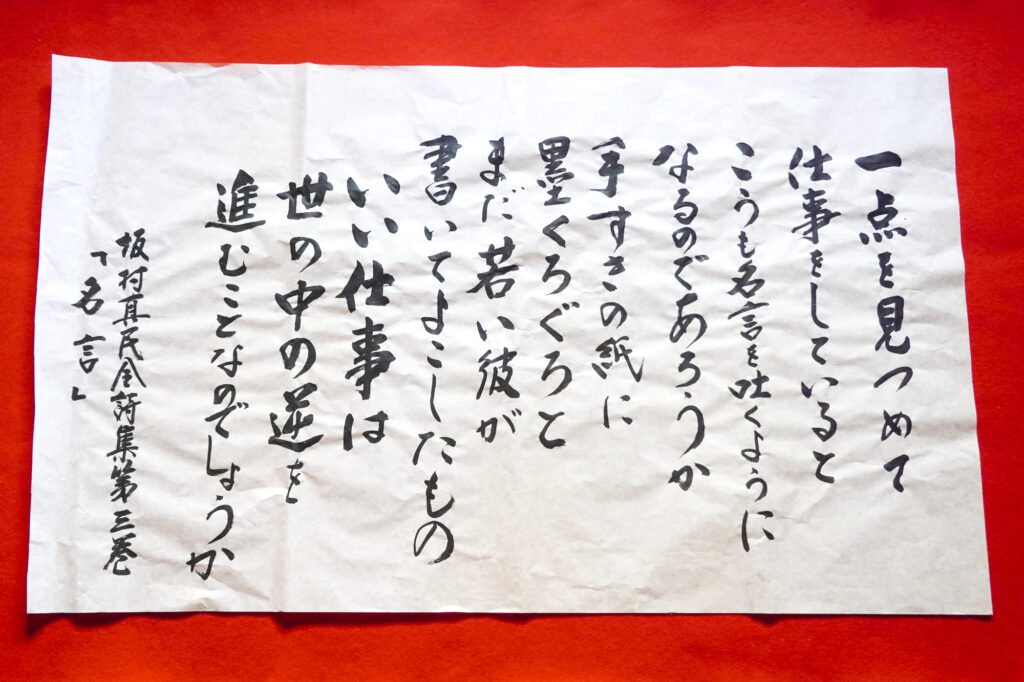 一点を見つめて
仕事をしていると
こうも名言を吐くように
なるのであろうか
手すきの紙に
墨くろぐろと
まだ若い彼が
書いてよこしたもの
いい仕事は
世の中の逆を
進むことなのでしょうか
坂村真民全詩集第三巻
「名言」